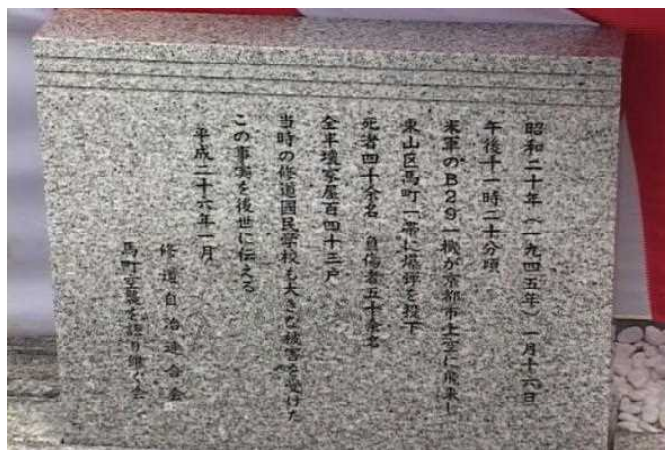 昭和二十年（一九四五年）一月十六日
午後十一時二十分頃
米軍のB29一機が京都市上空に飛来し
東山区馬町一帯に爆弾を投下
死者四十余名 負傷者五十余名
全半壊家屋百四十三戸
当時の修道国民学校も大きな被害を受けた
この事実を後世に伝える
平成二十六年一月
修道自治連合会
馬町空襲を語り継ぐ会